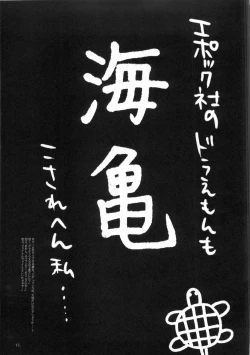 エポック社のドラえもんも
海亀
こされへん私……